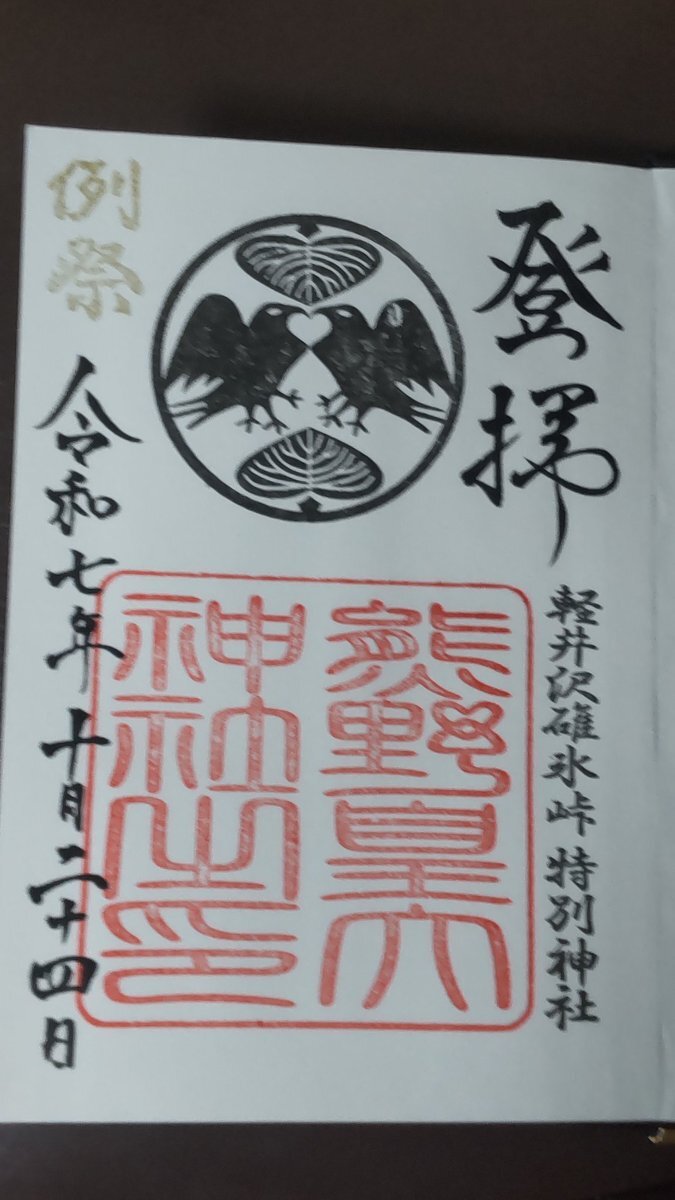 登拝
軽井沢碓氷峠 特別神社
熊野皇大
神社之印
例祭
令和七年十月二十四日